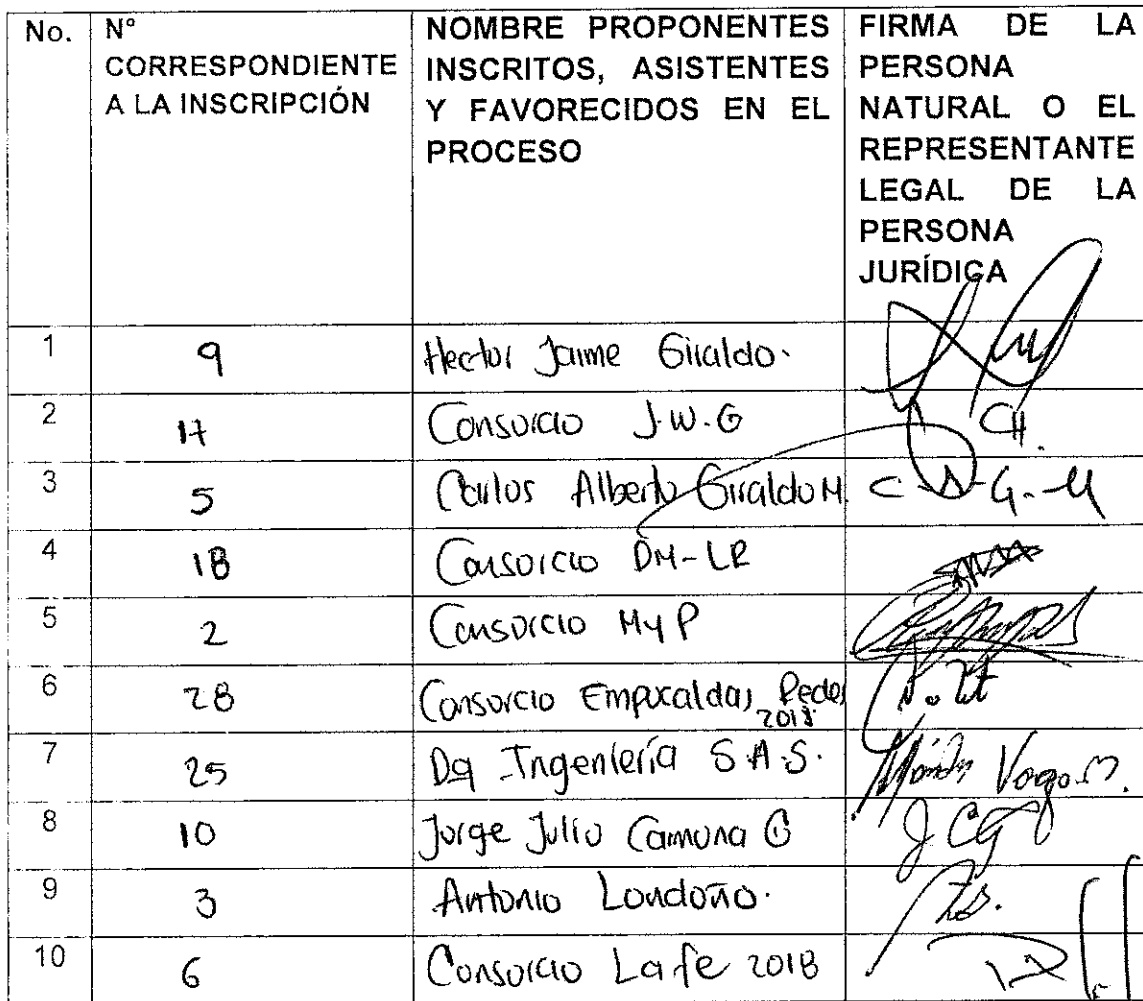 No. N° CORRESPONDIENTE A LA INSCRIPCIÓN NOMBRE PROPONENTES INSCRITOS, ASISTENTES Y FAVORECIDOS EN EL PROCESO FIRMA DE LA PERSONA NATURAL O EL REPRESENTANTE LEGAL DE LA PERSONA JURÍDICA
1 9 Hector Jaime Giraldo.
2 17 Consorcio J.W.G CH.
3 5 Carlos Alberto Giraldo M. C-A-G-M
4 18 Consorcio DM-LR
5 2 Consorcio MyP
6 28 Consorcio Empocaldas, Redes 2018.
7 25 Dq Ingeniería S.A.S.
8 10 Jorge Julio
9 3 Antonio Londoño.
10 6 Consorcio La fe 2018